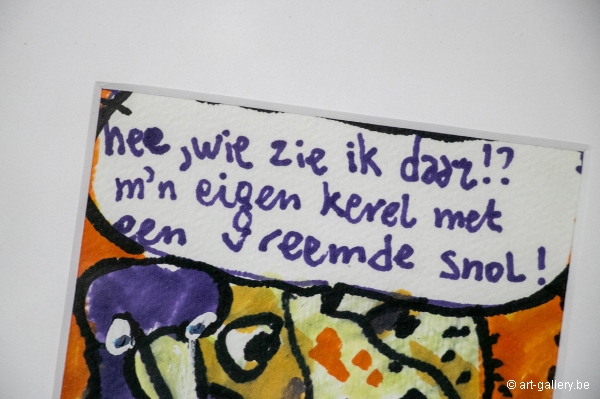 hee, wie zie ik daar!?
m'n eigen kerel met
een vreemde snol!
© art-gallery.be